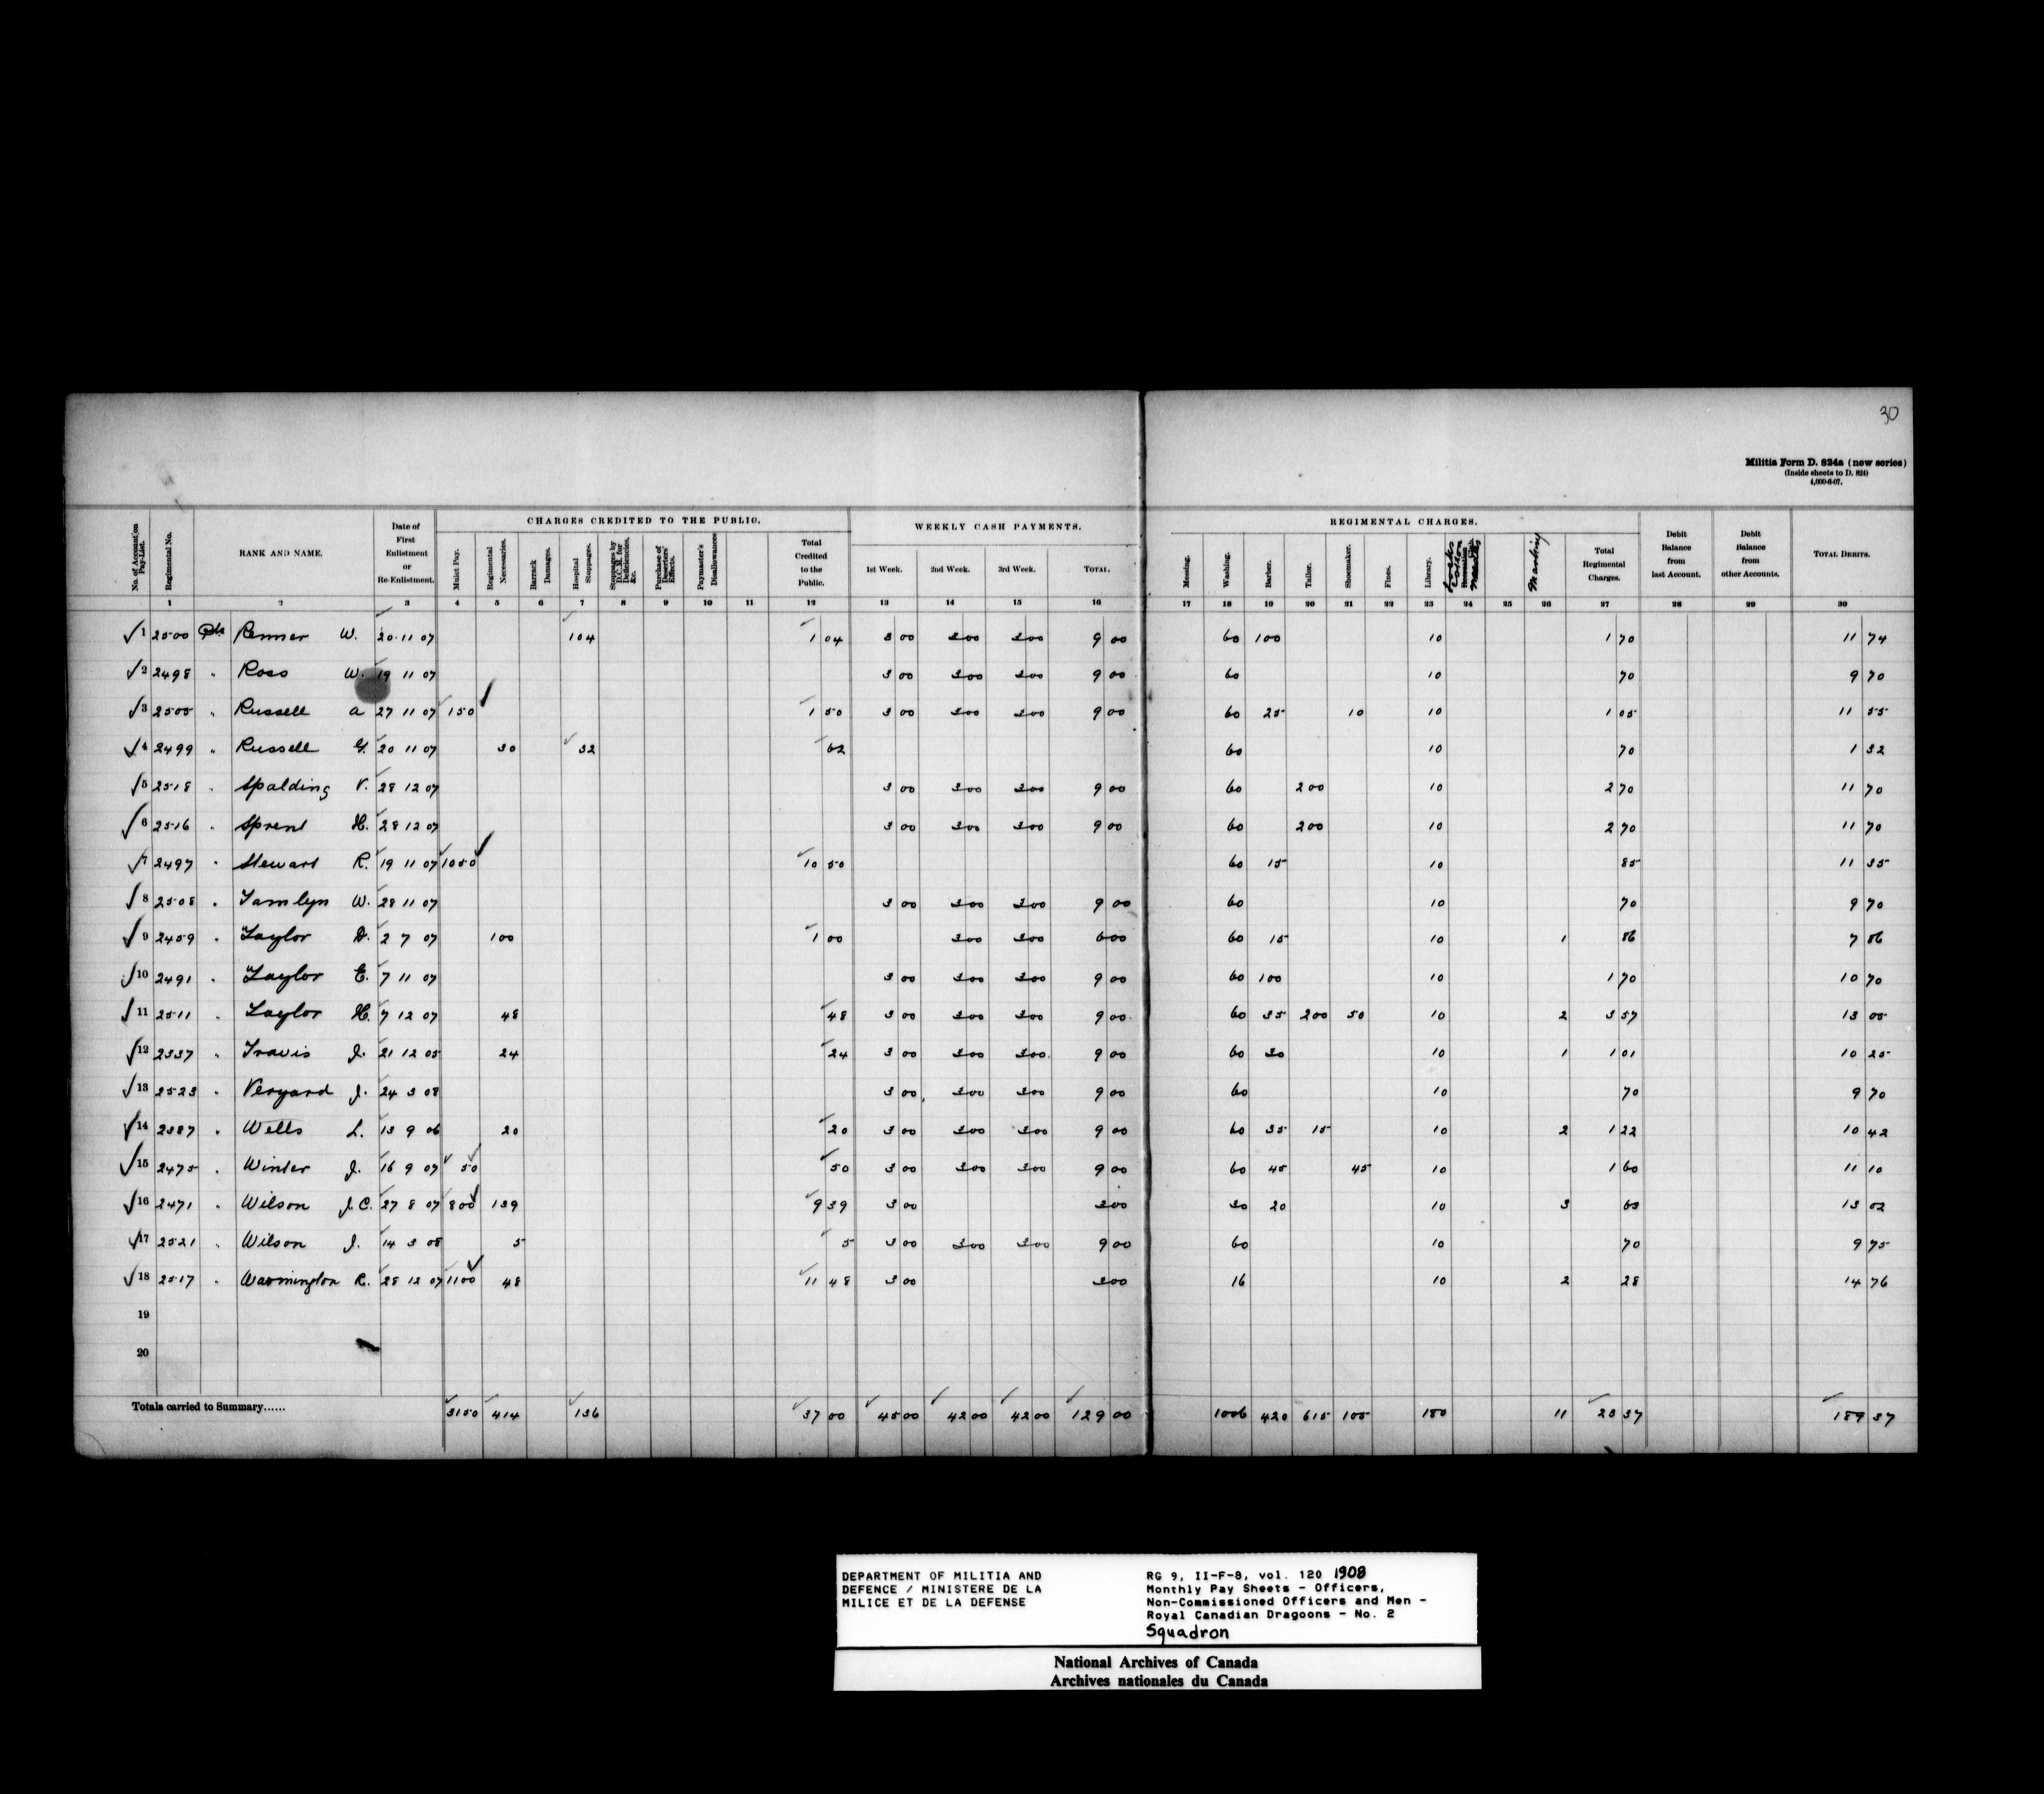 30
Militia Form D. 824a (new series)
(Inside sheets to D. 824)
4,000-6-07.
CHARGES CREDITED TO THE PUBLIC. WEEKLY CASH PAYMENTS. REGIMENTAL CHARGES.
No. of Account on Pay-List. Regimental No. RANK AND NAME. Date of First Enlistment or Re-Enlistment. Mulct Pay. Regimental Necessaries. Barrack Damages. Hospital Stoppages. Stoppages by D.C.M. for Deficiencies, &c. Purchase of Deserters' Effects. Paymaster's Disallowances Total Credited to the Public. 1st Week. 2nd Week. 3rd Week. TOTAL. Messing. Washing. Barber. Tailor. Shoemaker. Fines. Library. Marking Total Regimental Charges. Debit Balance from last Account. Debit Balance from other Accounts. TOTAL DEBITS.
1 2 3 4 5 6 7 8 9 10 11 12 13 14 15 16 17 18 19 20 21 22 23 24 25 26 27 28 29 30
1 2500 Pte Renner W. 20 11 07 104 1 04 3 00 3 00 3 00 9 00 60 100 10 1 70 11 74
2 2498 " Ross W. 19 11 07 3 00 3 00 3 00 9 00 60 10 70 9 70
3 2505 " Russell A 27 11 07 150 1 50 3 00 3 00 3 00 9 00 60 25 10 10 1 05 11 55
4 2499 " Russell G. 20 11 07 30 32 62 60 10 70 1 32
5 2518 " Spalding V. 28 12 07 3 00 3 00 3 00 9 00 60 200 10 2 70 11 70
6 2516 " Sprent H. 28 12 07 3 00 3 00 3 00 9 00 60 200 10 2 70 11 70
7 2497 " Stewart R. 19 11 07 1050 10 50 60 15 10 85 11 35
8 2508 " Tamlyn W. 28 11 07 3 00 3 00 3 00 9 00 60 10 70 9 70
9 2459 " Taylor D. 2 7 07 100 1 00 3 00 3 00 6 00 60 15 10 1 86 7 86
10 2491 " Taylor E. 7 11 07 3 00 3 00 3 00 9 00 60 100 10 1 70 10 70
11 2511 " Taylor H. 7 12 07 48 48 3 00 3 00 3 00 9 00 60 35 200 50 10 2 3 57 13 05
12 2337 " Travis J. 21 12 05 24 24 3 00 3 00 3 00 9 00 60 30 10 1 1 01 10 25
13 2523 " Veryard J. 24 3 08 3 00 3 00 3 00 9 00 60 10 70 9 70
14 2387 " Wells L. 13 9 06 20 20 3 00 3 00 3 00 9 00 60 35 15 10 2 1 22 10 42
15 2475 " Winter J. 16 9 07 50 50 3 00 3 00 3 00 9 00 60 45 45 10 1 60 11 10
16 2471 " Wilson J.C. 27 8 07 800 139 9 39 3 00 3 00 30 20 10 3 63 13 02
17 2521 " Wilson J. 14 3 08 5 5 3 00 3 00 3 00 9 00 60 10 70 9 75
18 2517 " Warmington R. 28 12 07 1100 48 11 48 3 00 3 00 16 10 2 28 14 76
19
20
Totals carried to Summary...... 3150 414 136 37 00 45 00 42 00 42 00 129 00 1006 420 615 105 180 11 23 37 189 37
DEPARTMENT OF MILITIA AND
DEFENCE / MINISTERE DE LA
MILICE ET DE LA DEFENSE
RG 9, II-F-8, vol. 120 1908
Monthly Pay Sheets - Officers,
Non-Commissioned Officers and Men -
Royal Canadian Dragoons - No. 2
Squadron
National Archives of Canada
Archives nationales du Canada